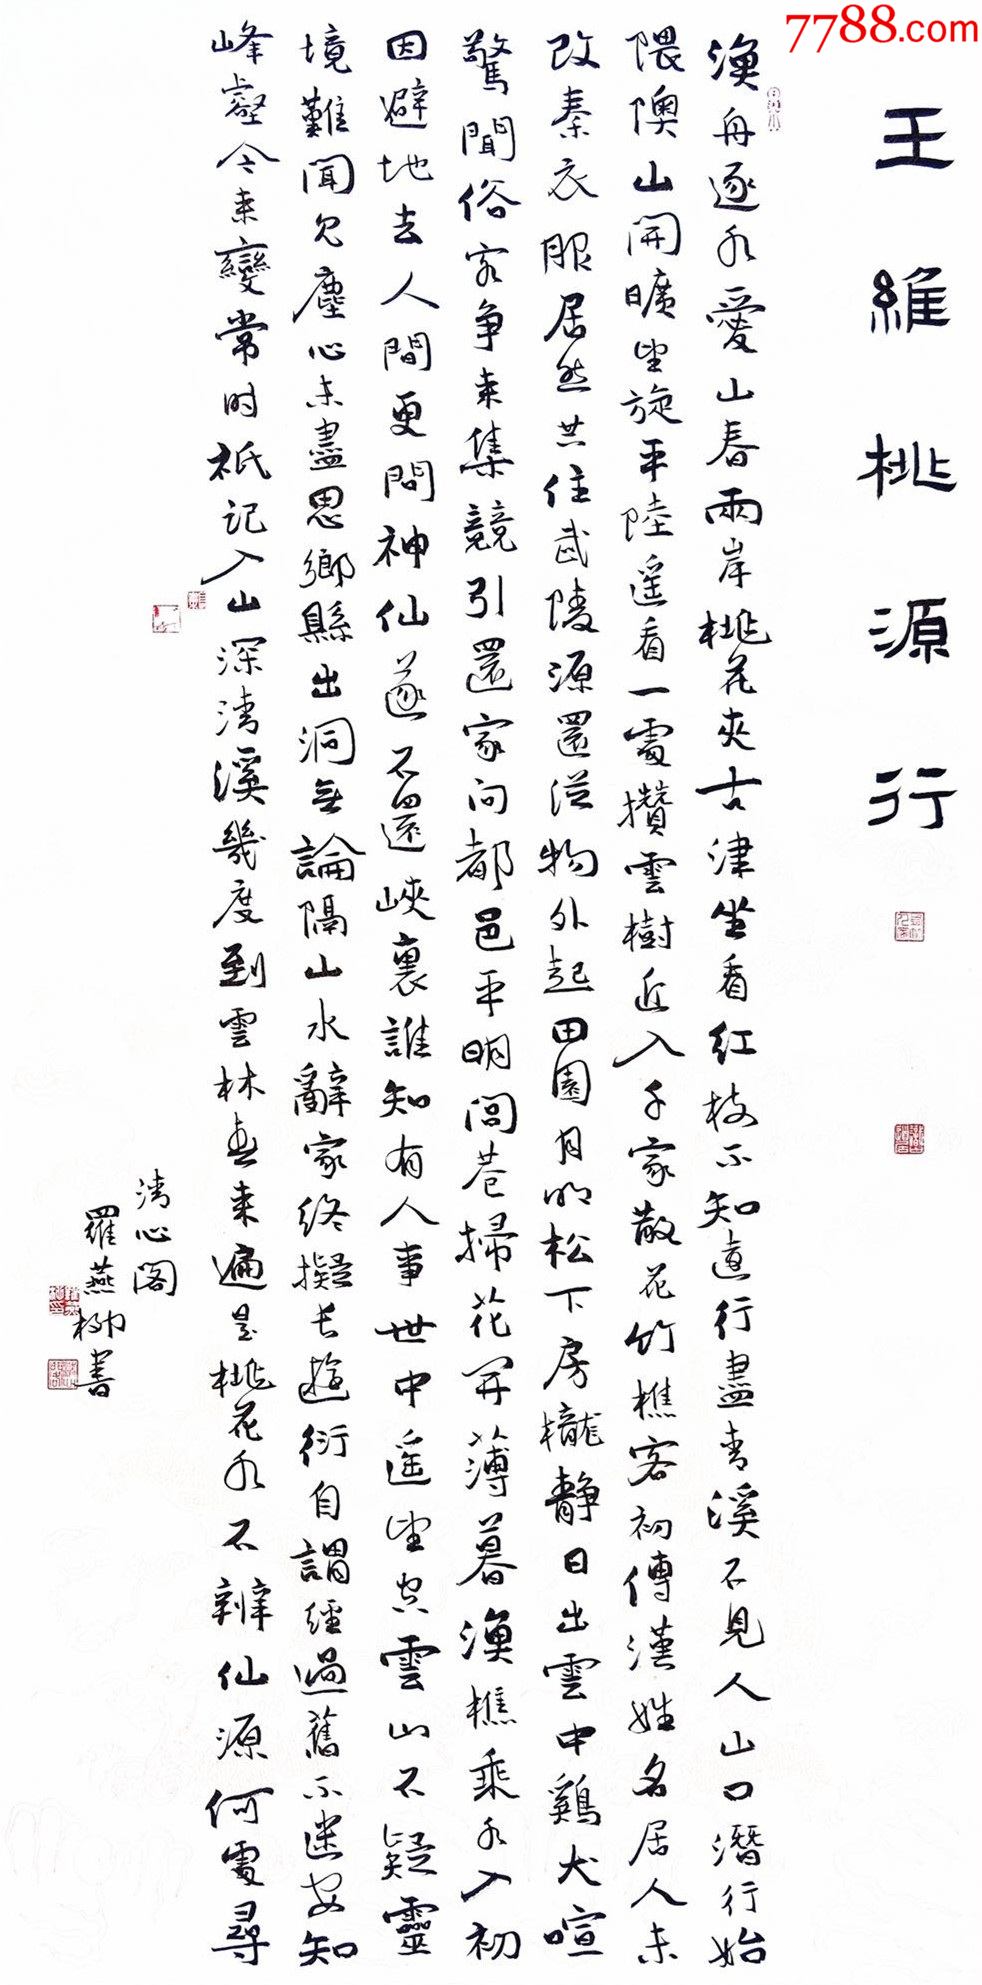 7788.com
王維桃源行
漁舟逐水愛山春兩岸桃花夾古津坐看紅樹不知遠行盡青溪不見人山口潛行始
隈隩山開曠望旋平陸遥看一處攢雲樹近入千家散花竹樵客初傳漢姓名居人未
改秦衣服居然共住武陵源還從物外起田園月明松下房櫳静日出雲中鷄犬喧
驚聞俗客争来集競引還家问都邑平明閭巷掃花開薄暮漁樵乘水入初
因避地去人間更問神仙遂不還峽裏誰知有人事世中遥望空雲山不疑靈
境難聞見塵心未盡思鄉縣出洞無論隔山水辭家終擬長遊衍自謂經過舊不迷安知
峰壑今来變常时祇記入山深清溪幾度到雲林春来遍是桃花水不辨仙源何處尋
清心閣
羅燕柳書